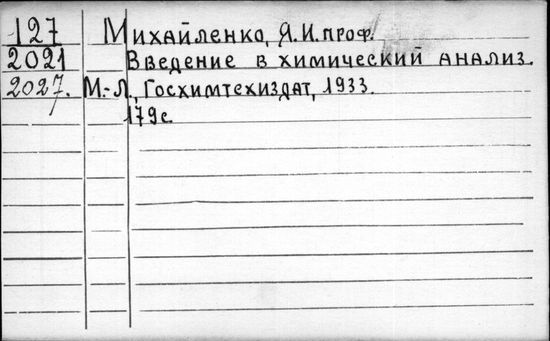 127 Михайленко, Я.И. проф.
2021 Введение в химический анализ.
2027. М.-Л., Госхимтехиздат, 1933.
179с.